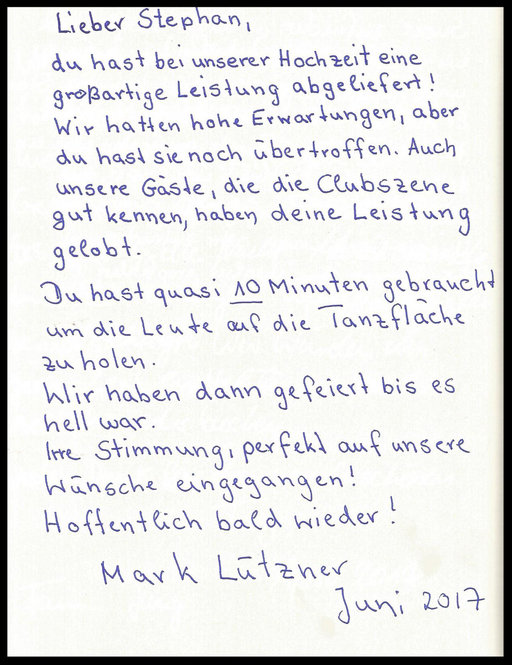 Lieber Stephan,
du hast bei unserer Hochzeit eine
großartige Leistung abgeliefert!
Wir hatten hohe Erwartungen, aber
du hast sie noch übertroffen. Auch
unsere Gäste, die die Clubszene
gut kennen, haben deine Leistung
gelobt.
Du hast quasi 10 Minuten gebraucht
um die Leute auf die Tanzfläche
zu holen.
Wir haben dann gefeiert bis es
hell war.
Irre Stimmung, perfekt auf unsere
Wünsche eingegangen!
Hoffentlich bald wieder!
Mark Lützner
Juni 2017